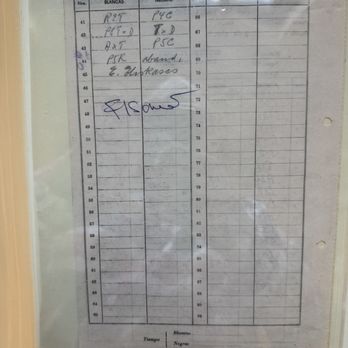 Nos. BLANCAS
41 R2T P4C 66
42 TxD 67
43 AxT P5C 68
44 P5R aband. 69
45 E. Eliskases 70
46 71
47 72
48 73
49 74
50 75
51 76
52 77
53 78
54 79
55 80
56 81
57 82
58 83
59 84
60 85
61 86
62 87
63 88
64 89
65 90
Blancas
Tiempo
Negras